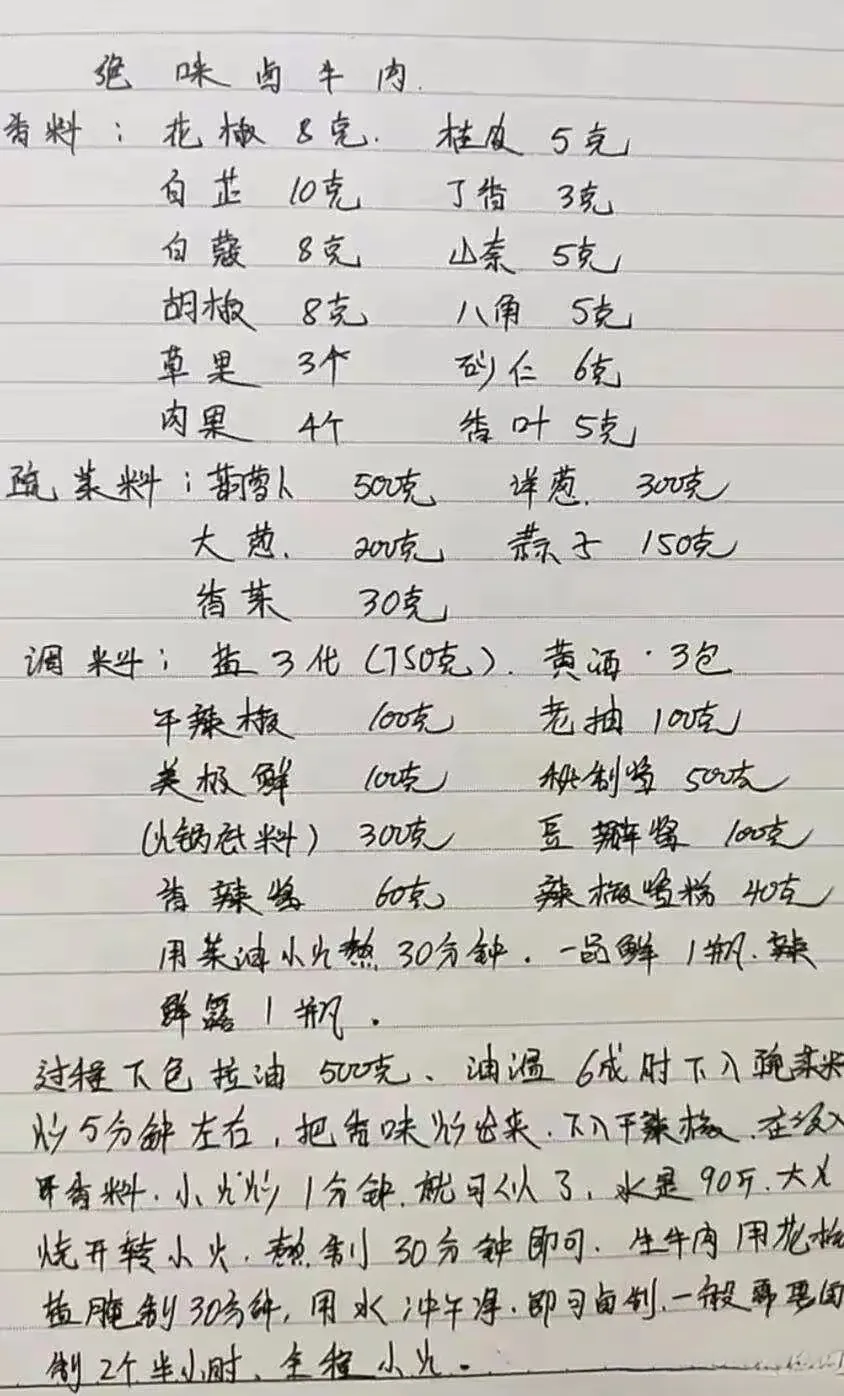 绝味卤牛肉.
香料：花椒 8克. 桂皮 5克
白芷 10克 丁香 3克
白蔻 8克 山奈 5克
胡椒 8克 八角 5克
草果 3个 砂仁 6克
肉果 4个 香叶 5克
蔬菜料：葫萝卜 500克 洋葱. 300克
大葱. 200克 蒜子 150克
香菜 30克
调料：盐3代(750克). 黄酒·3包
干辣椒 100克 老抽 100克
美极鲜 100克 秘制酱 500克
(火锅底料) 300克 豆瓣酱 100克
香辣酱 60克 辣椒酱粉 40克
用菜油小火熬30分钟. 一品鲜1瓶. 辣
鲜露1瓶.
过程下色拉油500克、油温6成时下入蔬菜料
炒5分钟左右, 把香味炒出来. 下入干辣椒. 在
香料. 小火炒1分钟. 就可以了, 水是90斤. 大火
烧开转小火. 熬制30分钟即可. 生牛肉用花椒
盐腌制30分钟, 用水冲干净. 即可卤制. 一般需要卤
制2个半小时、全程小火.